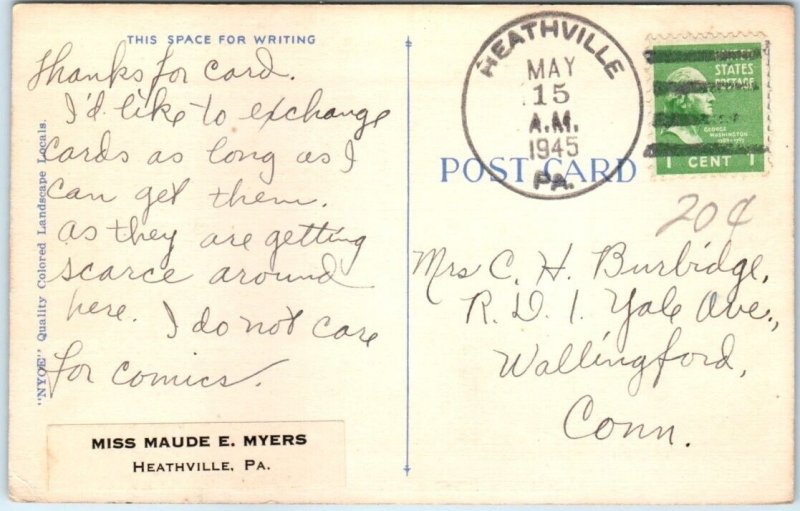 THIS SPACE FOR WRITING
Thanks for card.
I'd like to exchange
cards as long as I
can get them.
as they are getting
scarce around
here. I do not care
for comics.
"NYOE" Quality Colored Landscape Locals.
MISS MAUDE E. MYERS
HEATHVILLE, PA.
HEATHVILLE
MAY
15
A.M.
1945
PA.
STATES
POSTAGE
GEORGE
WASHINGTON
1 CENT 1
POST CARD
20¢
Mrs C. H. Burbidge,
R. D. 1. Yale Ave.,
Wallingford,
Conn.